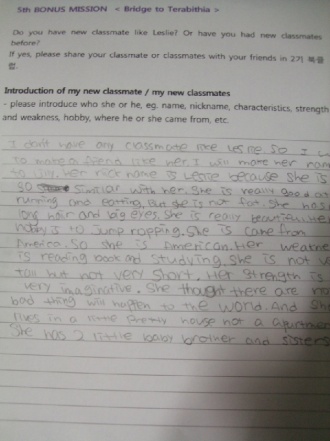 5th BONUS MISSION < Bridge to Terabithia >
Do you have new classmate like Leslie? Or have you had new classmates
before?
If yes, please share your classmate or classmates with your friends in 27기 북클
럽.
Introduction of my new classmate / my new classmates
- please introduce who she or he, eg. name, nickname, characteristics, strength
and weakness, hobby, where he or she came from, etc.
I don't have any classmate like leslie. So I
to make a friend like her. I will make her name
to Lily. Her nick name is leslie because she is
so similar with her. She is really good at
running and eating, But she is not fat. She has
long hair and big eyes. She is really beautiful. He
hobby is to jump ropping. She is came from
America. So she is American. Her weakne
is reading book and studying. She is not v
tall but not very short. Her strength is
very imaginative. She thought there are no
bad thing will happen to the world. And she
lives in a little pretty house not a apartmen
She has 2 little baby brother and sisters